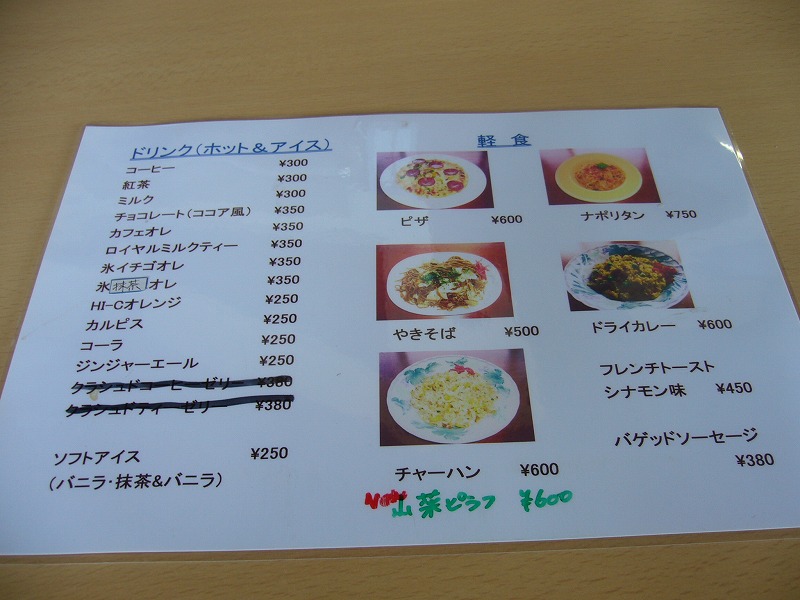 ドリンク(ホット＆アイス)
コーヒー ¥300
紅茶 ¥300
ミルク ¥300
チョコレート(ココア風) ¥350
カフェオレ ¥350
ロイヤルミルクティー ¥350
氷イチゴオレ ¥350
氷抹茶オレ ¥350
HI-Cオレンジ ¥250
カルピス ¥250
コーラ ¥250
ジンジャーエール ¥250
クラシュドコーヒーゼリー ¥380
クラシュドティーゼリー ¥380
ソフトアイス ¥250
(バニラ・抹茶&バニラ)
軽食
ピザ ¥600
ナポリタン ¥750
やきそば ¥500
ドライカレー ¥600
チャーハン ¥600
フレンチトースト
シナモン味 ¥450
バゲッドソーセージ
¥380
New 山菜ピラフ ¥600